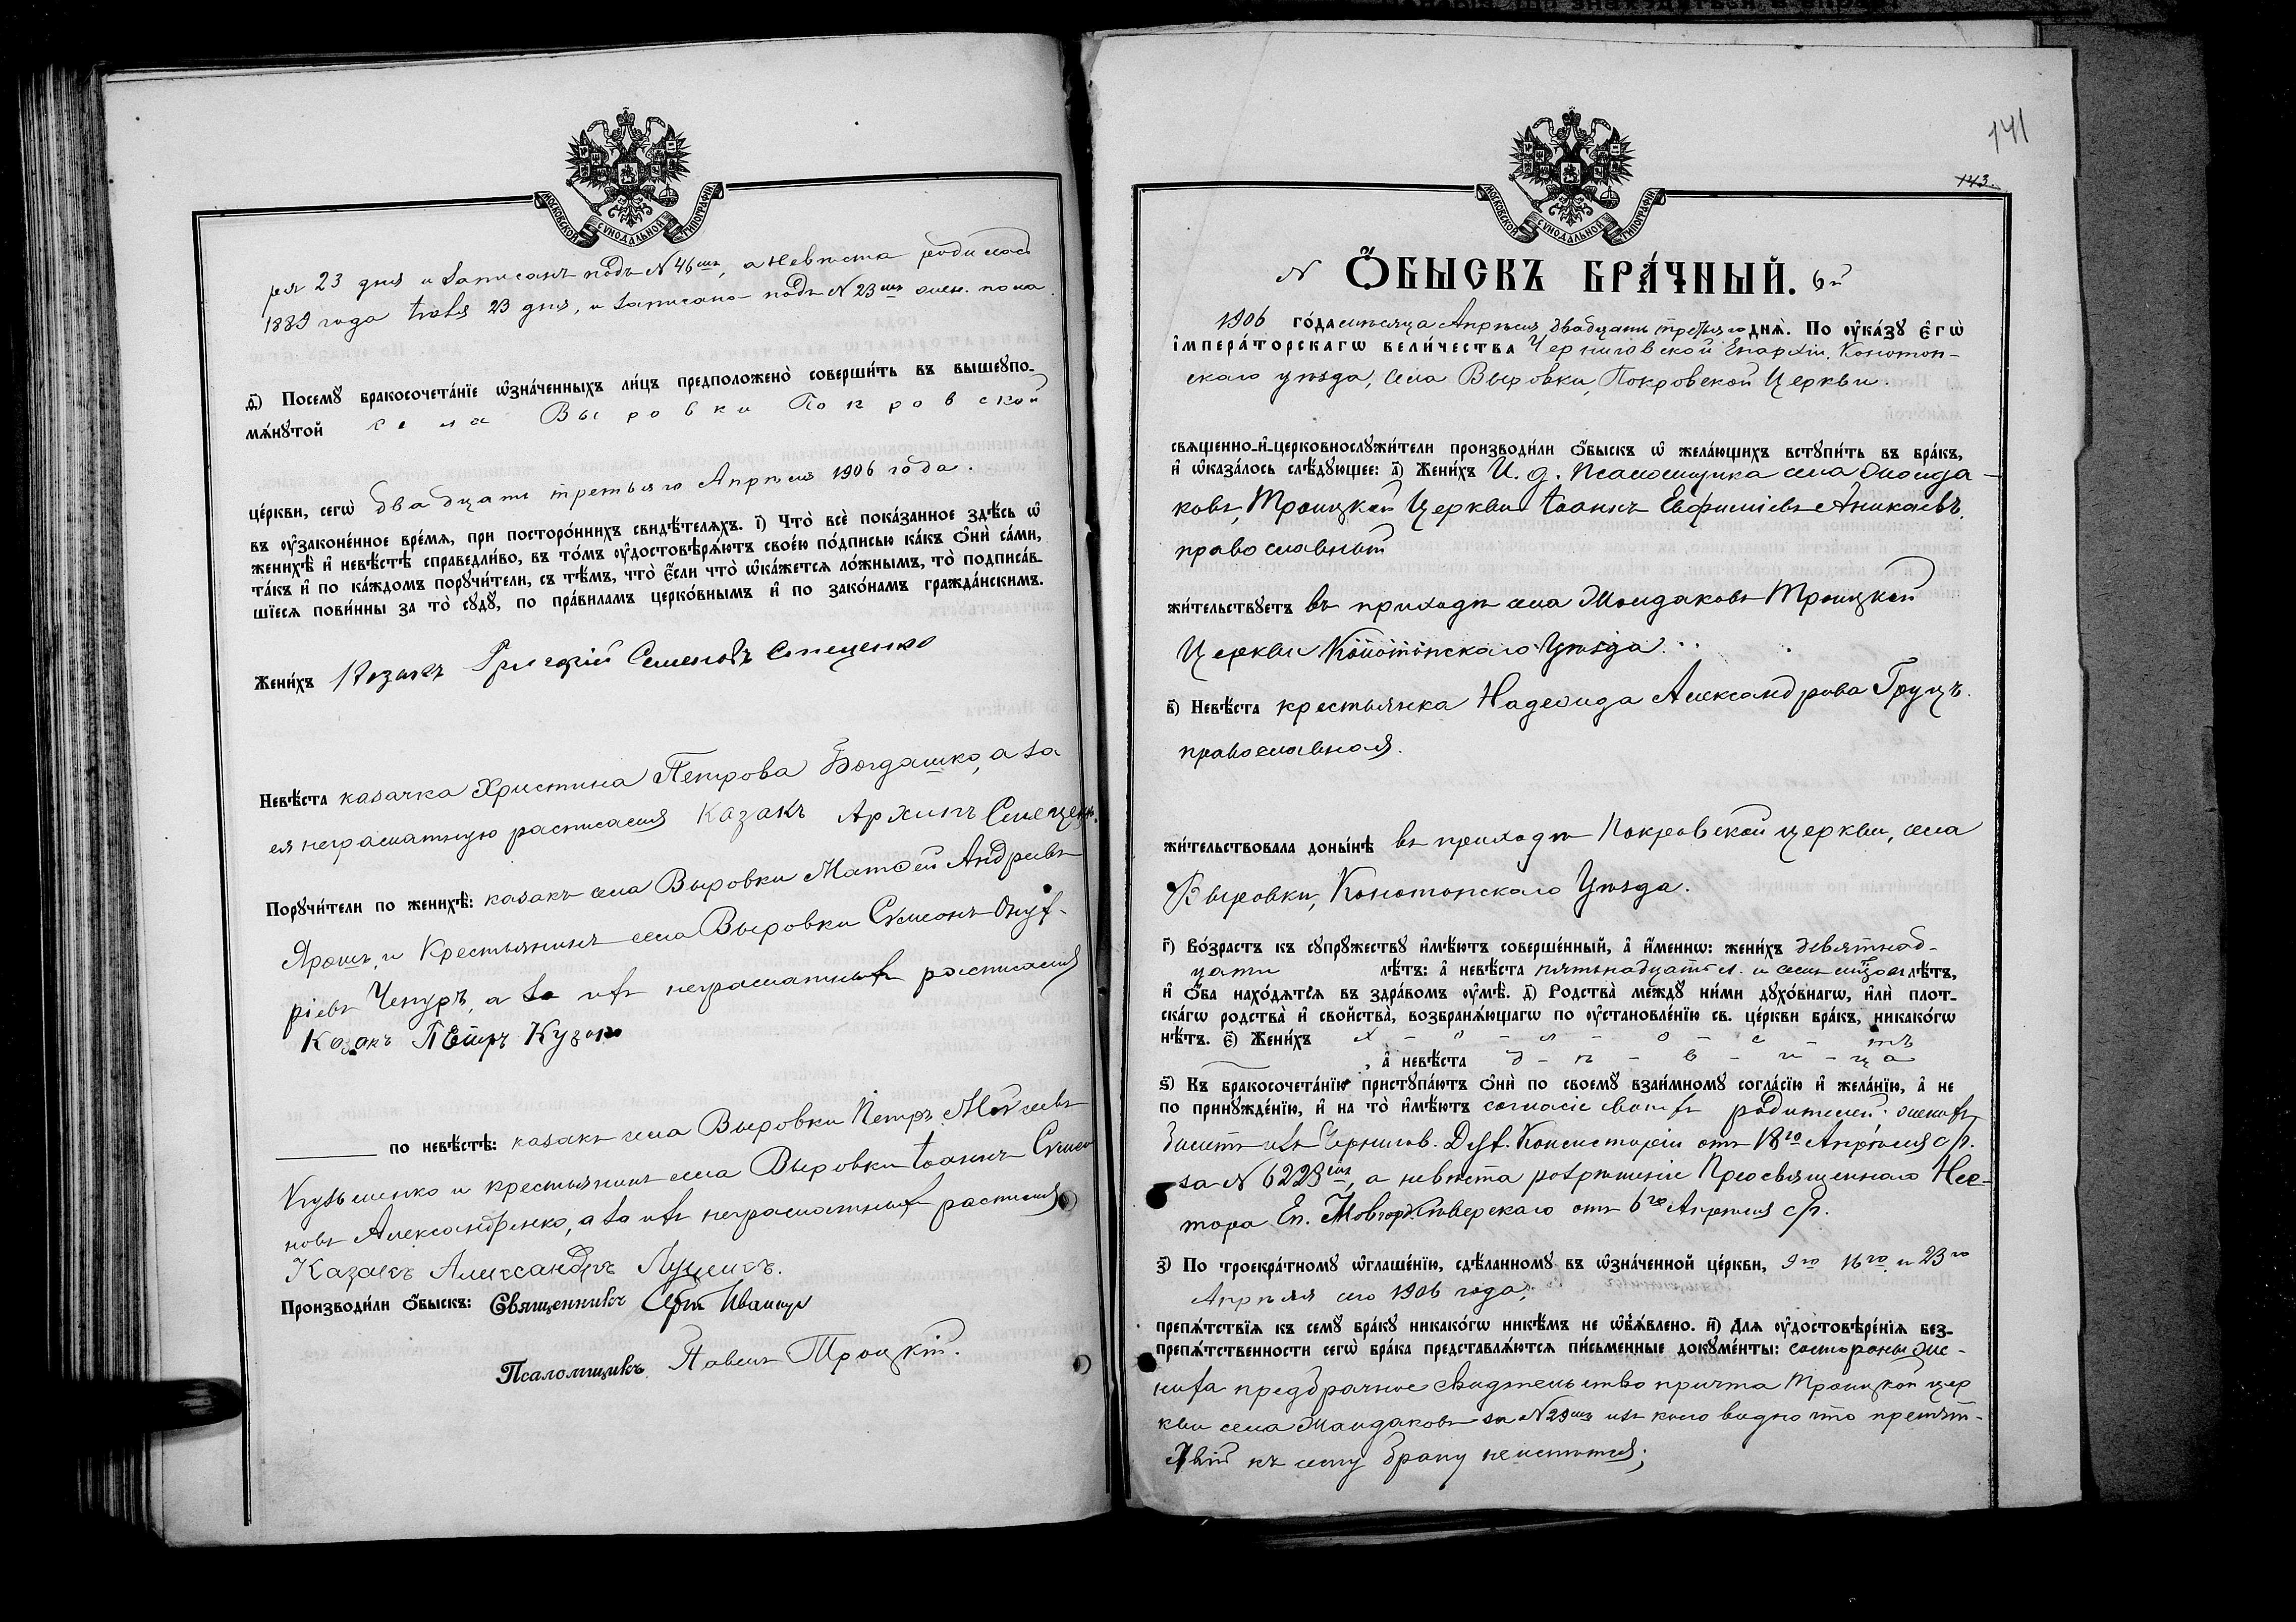 МОСКОВСКОЙ СѴНОДАЛЬНОЙ ТИПОГРАФІИ
ря 23 дня и записанъ подъ N 46мъ, а невѣста родилась
1889 года Іюля 23 дня, и записана подъ N 23мъ жен. пола.
д҃і) Посемꙋ бракосочета́нїе ѡ҆зна́ченныхъ ли́цъ предположено̀ соверши́ть въ вышеꙋпо-
мѧ́нꙋтой села Выровки Покровской
це́ркви, сегѡ̀ двадцать третьяго Апрѣля 1906 года.
въ ᲂу҆законе́нное вре́мѧ, при посторо́ннихъ свидѣ́телѧхъ. і҃) Что̀ всѐ пока́занное здѣ́сь ѡ҆
женихѣ̀ и҆ невѣ́стѣ справедли́во, въ то́мъ ᲂу҆достовѣрѧ́ютъ свое́ю по́дписью ка́къ ѻ҆нѝ са́ми,
та́къ и҆ по ка́ждомъ порꙋчи́тели, съ тѣ́мъ, что̀ є҆́сли что̀ ѡ҆ка́жетсѧ ло́жнымъ, то̀ подписа́в-
шїесѧ пови́нны за то̀ сꙋдꙋ̀, по пра́виламъ церко́внымъ и҆ по зако́намъ гражда́нскимъ.
Жени́хъ Козакъ Григорій Семеновъ Слещенко
Невѣ́ста казачка Христина Петрова Богдашко, а за
ея неграматную расписался Казакъ Архипъ
Порꙋчи́тели по женихѣ̀: казакъ села Выровки Матѳей Андреевъ
Ярошъ, и Крестьянинъ села Выровки Сѵмеонъ Онуф-
ріевъ Чепуръ, а за ихъ неграматныхъ расписался
Козакъ Пётръ Кузько
по невѣ́стѣ: казакъ села Выровки Петръ
Кузьменко и крестьянинъ села Выровки Іоаннъ Сѵмео
новъ Александренко, а за ихъ неграматныхъ расписался
Казакъ Александръ Луценко.
Производи́ли ѻ҆́быскъ: Священникъ Сергій Иваницкій
Псаломщикъ Павелъ Троицкій.
141
143.
МОСКОВСКОЙ СѴНОДАЛЬНОЙ ТИПОГРАФІИ
N Ѻ҆́БЫСКЪ БРА́ЧНЫЙ. 6й
1906 го́да мѣсяца Апрѣля двадцать третьяго днѧ̀. По ᲂу҆ка́зꙋ є҆гѡ̀
і҆мпера́торскагѡ вели́чества Черниговской Епархіи, Конотоп-
скаго уѣзда, села Выровки, Покровской Церкви.
свѧщенно-и҆-церковнослꙋжи́тели производи́ли ѻ҆́быскъ ѡ҆ жела́ющихъ встꙋпи́ть въ бра́къ,
и҆ ѡ҆каза́лось слѣ́дꙋющее: а҃) Жени́хъ И. д. Псаломщика села Мланда-
ковъ, Троицкой Церкви Іоаннъ Евфиміевъ Аникаевъ,
православный
жи́тельствꙋетъ въ приходѣ села Мландаковъ Троицкой
Церкви Конотопскаго Уѣзда.
в҃) Невѣ́ста крестьянка Надежда Александрова Груцъ
православная.
жи́тельствовала доны́нѣ въ приходѣ Покровской церкви, села
Выровки, Конотопскаго Уѣзда.
г҃) Во́зрастъ къ сꙋпрꙋ́жествꙋ и҆мѣ́ютъ соверше́нный, а҆ и҆́меннѡ: жени́хъ девятнад-
цати лѣ́тъ: а҆ невѣ́ста пятьнадцать л. и семь мѣс. лѣ́тъ,
и҆ ѻ҆́ба нахо́дѧтсѧ въ здра́вомъ ᲂу҆мѣ̀. д҃) Родства̀ междꙋ̀ ни́ми дꙋхо́внагѡ, и҆лѝ плот-
ска́гѡ родства̀ и҆ сво́йства, возбранѧ́ющагѡ по ᲂу҆становле́нїю св. це́ркви бра́къ, никако́гѡ
нѣ́тъ. є҃) Жени́хъ х - о - л - о - с - тъ
, а҆ невѣ́ста д - ѣ - в - и - ца
ѕ҃) Къ бракосочета́нїю пристꙋпа́ютъ ѻ҆нѝ по своемꙋ̀ взаи́мномꙋ согла́сїю и҆ жела́нїю, а҆ не
по принꙋжде́нїю, и҆ на то̀ и҆мѣ́ютъ согласіе своихъ родителей, женихъ
билетъ изъ Чернигов. Дух. Консисторіи отъ 18го Апрѣля с/г.
за N 6223мъ, а невѣста разрѣшеніе Преосвященнаго Нес-
тора Еп. Новгородсѣверскаго отъ 6го Апрѣля с/г.
з҃) По троекра́тномꙋ ѡ҆глаше́нїю, сдѣ́ланномꙋ въ ѡ҆зна́ченной це́ркви, 9го 16го и 23го
Апрѣля сего 1906 года,
препѧ́тствїѧ къ семꙋ̀ бра́кꙋ никако́гѡ никѣ́мъ не ѡ҆б̾ѧ́влено. и҃) Для ᲂу҆достовѣре́нїѧ без-
препѧ́тственности сегѡ̀ бра́ка представлѧ́ютсѧ пи́сьменные докꙋме́нты: со стороны же-
ниха предбрачное свидѣтельство причта Троицкой цер
кви села Мландаковъ за N 29мъ изъ коего видно что препят-
ствій къ сему браку неимѣется;